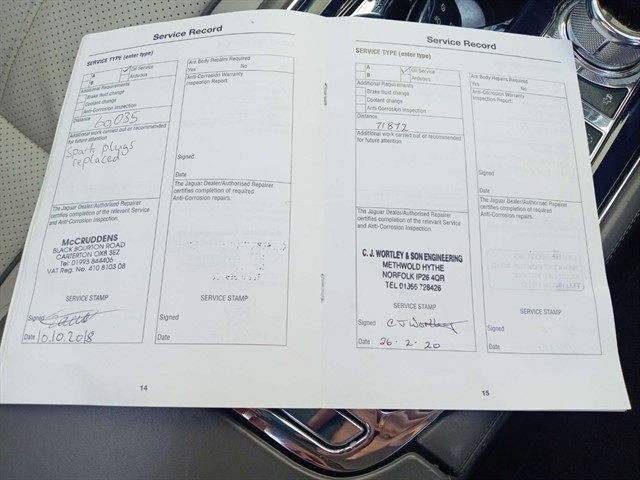 Service Record
SERVICE TYPE (enter type)
A
Oil Service
B
Antivirus
Additional Requirements
Brake fluid change
Coolant change
Anti-Corrosion Inspection
Distance
60,035
Additional work carried out or recommended
for future attention
Spark plugs
replaced
The Jaguar Dealer/Authorised Repairer
certifies completion of the relevant Service
and Anti-Corrosion Inspection.
McCRUDDENS
BLACK BOURTON ROAD
CARTERTON OX8 3EZ
Tel: 01993 844406
VAT Reg. No. 410 8103 08
SERVICE STAMP
Signed
Date 10.10.2018
Are Body Repairs Required
Yes No
Anti-Corrosion Warranty
Inspection Report
Signed
Date
The Jaguar Dealer/Authorised Repairer
certifies completion of required
Anti-Corrosion repairs.
SERVICE STAMP
Signed
Date
14
Service Record
SERVICE TYPE (enter type)
A
Oil Service
B
Additional Requirements
Brake fluid change
Coolant change
Anti-Corrosion Inspection
Distance
71872
Additional work carried out or recommended
for future attention
The Jaguar Dealer/Authorised Repairer
certifies completion of the relevant Service
and Anti-Corrosion Inspection.
C. J. WORTLEY & SON ENGINEERING
METHWOLD HYTHE
NORFOLK IP26 4QR
TEL 01366 728426
SERVICE STAMP
Signed C J Wortley
Date 26.2.20
Are Body Repairs Required
Yes No
Anti-Corrosion Warranty
Inspection Report
Signed
Date
The Jaguar Dealer/Authorised Repairer
certifies completion of required
Anti-Corrosion repairs.
SERVICE STAMP
Signed
Date
15